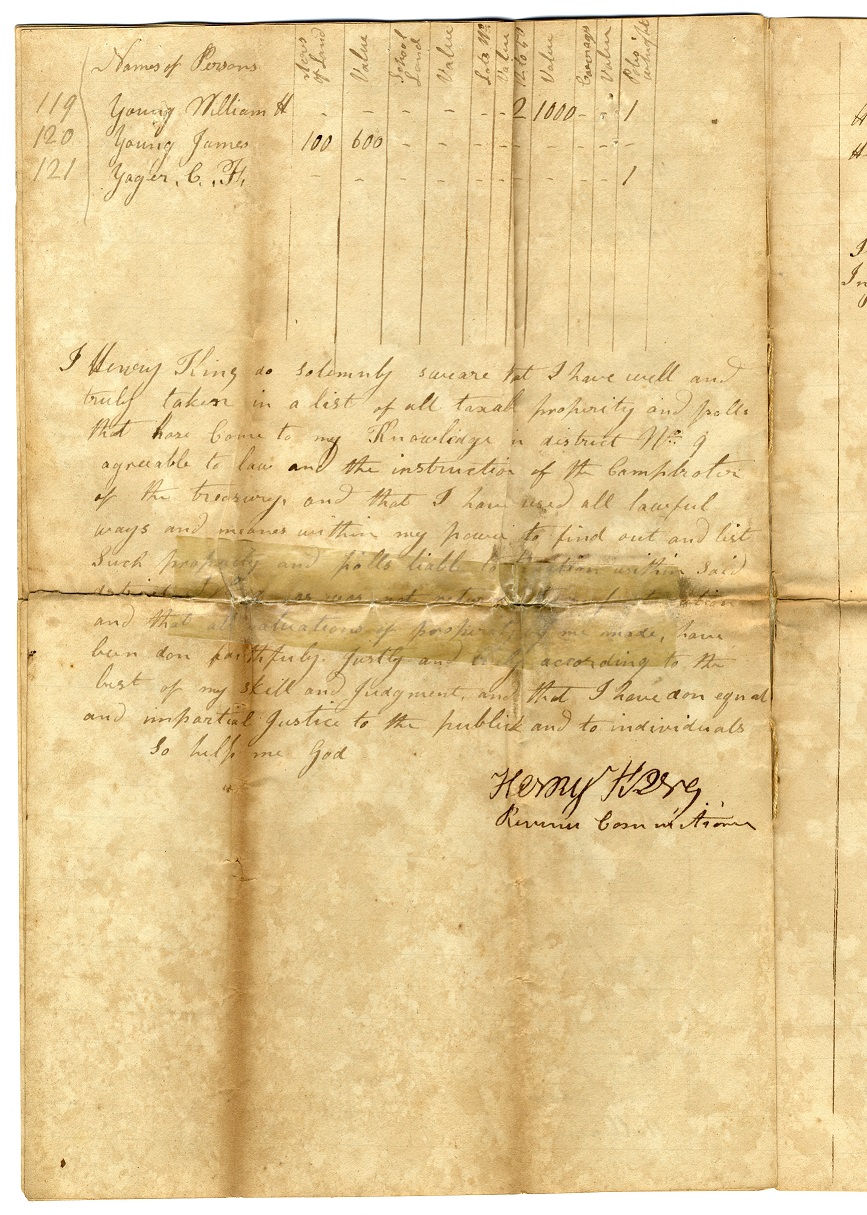 Names of Persons Acres of Land Value School Land Value Lots No. Value Value Carriages Value Polls
119 Young William H - - - - - - 2 1000 - - 1
120 Young James 100 600 - - - - - - - - -
121 Yager, C. F. - - - - - - - - - - 1
I Henry King do solemnly sweare that I have well and
truly taken in a list of all taxabl properity and polls
that hase Come to my Knowlidge in district No. 9
agreeable to law and the instruction of the Comptroler
of the treasury, and that I have used all lawful
ways and meanes within my power to find out and list
Such properity and polls liable to taxation within said
district
and that all valuations of properity by me made, have
been don faithfuly. Justly and truly according to the
best of my skill and Judgment, and that I have don equal
and impartial Justice to the publick and to individuals
So help me God
Henry King
Revenue Commissioner
H
H